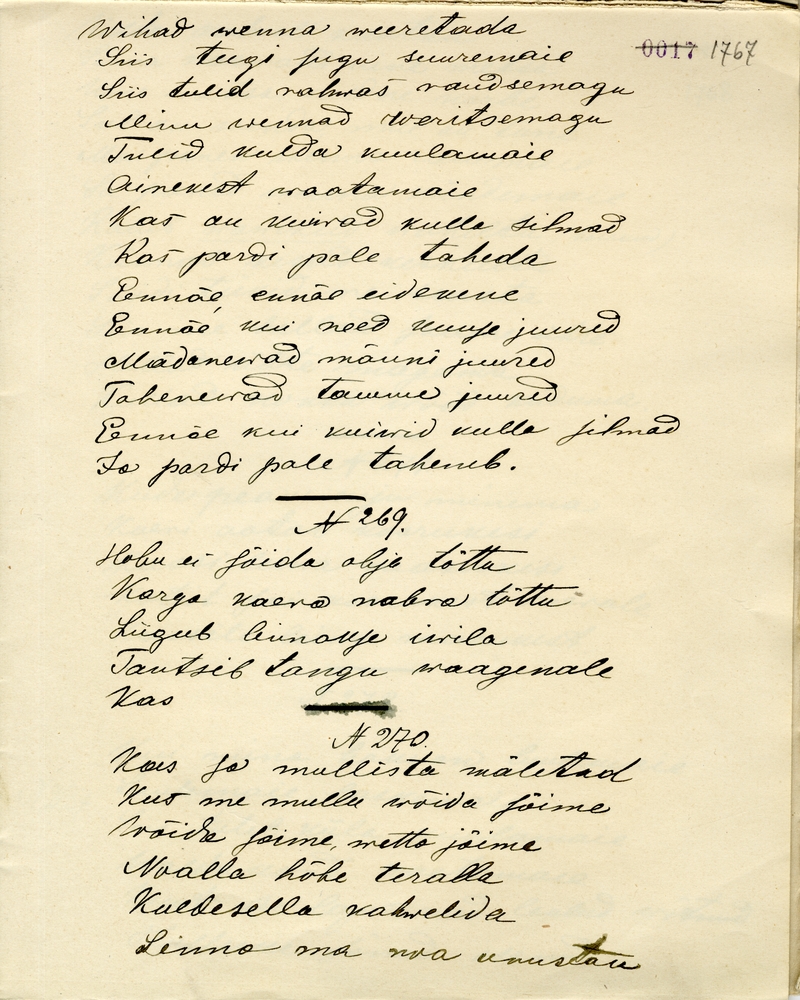 Wihad wenna weeretada
0017 1767
Siis tugi sugu suuremaie
Siis tulid rahwas raudsemagu
Minu wennad weritsemagu
Tulid kulda kuulamaie
Ainekest waatamaie
Kas on kuiwad kulla silmad
Kas pardi pale taheda
Ennäe ennäe eidekene
Ennäe kui need kuuse juured
Mädanewad männi juured
Tahenewad tamme juured
Ennäe kui kuiwid kulla silmad
Ja pardi pale taheneb.
N 269.
Hobu ei sõida ohja tõttu
Karga kaera nabra tõttu
Liigub linnakse iwila
Tantsib tangu waagenale
Kas
N 270.
Kas sa mullista mäletad
Kus me mullu wõida sõime
Wõida sõime, wetta jõime
Noalla hõbe teralla
Kuldesella kahwelida
Sinna ma noa unustan